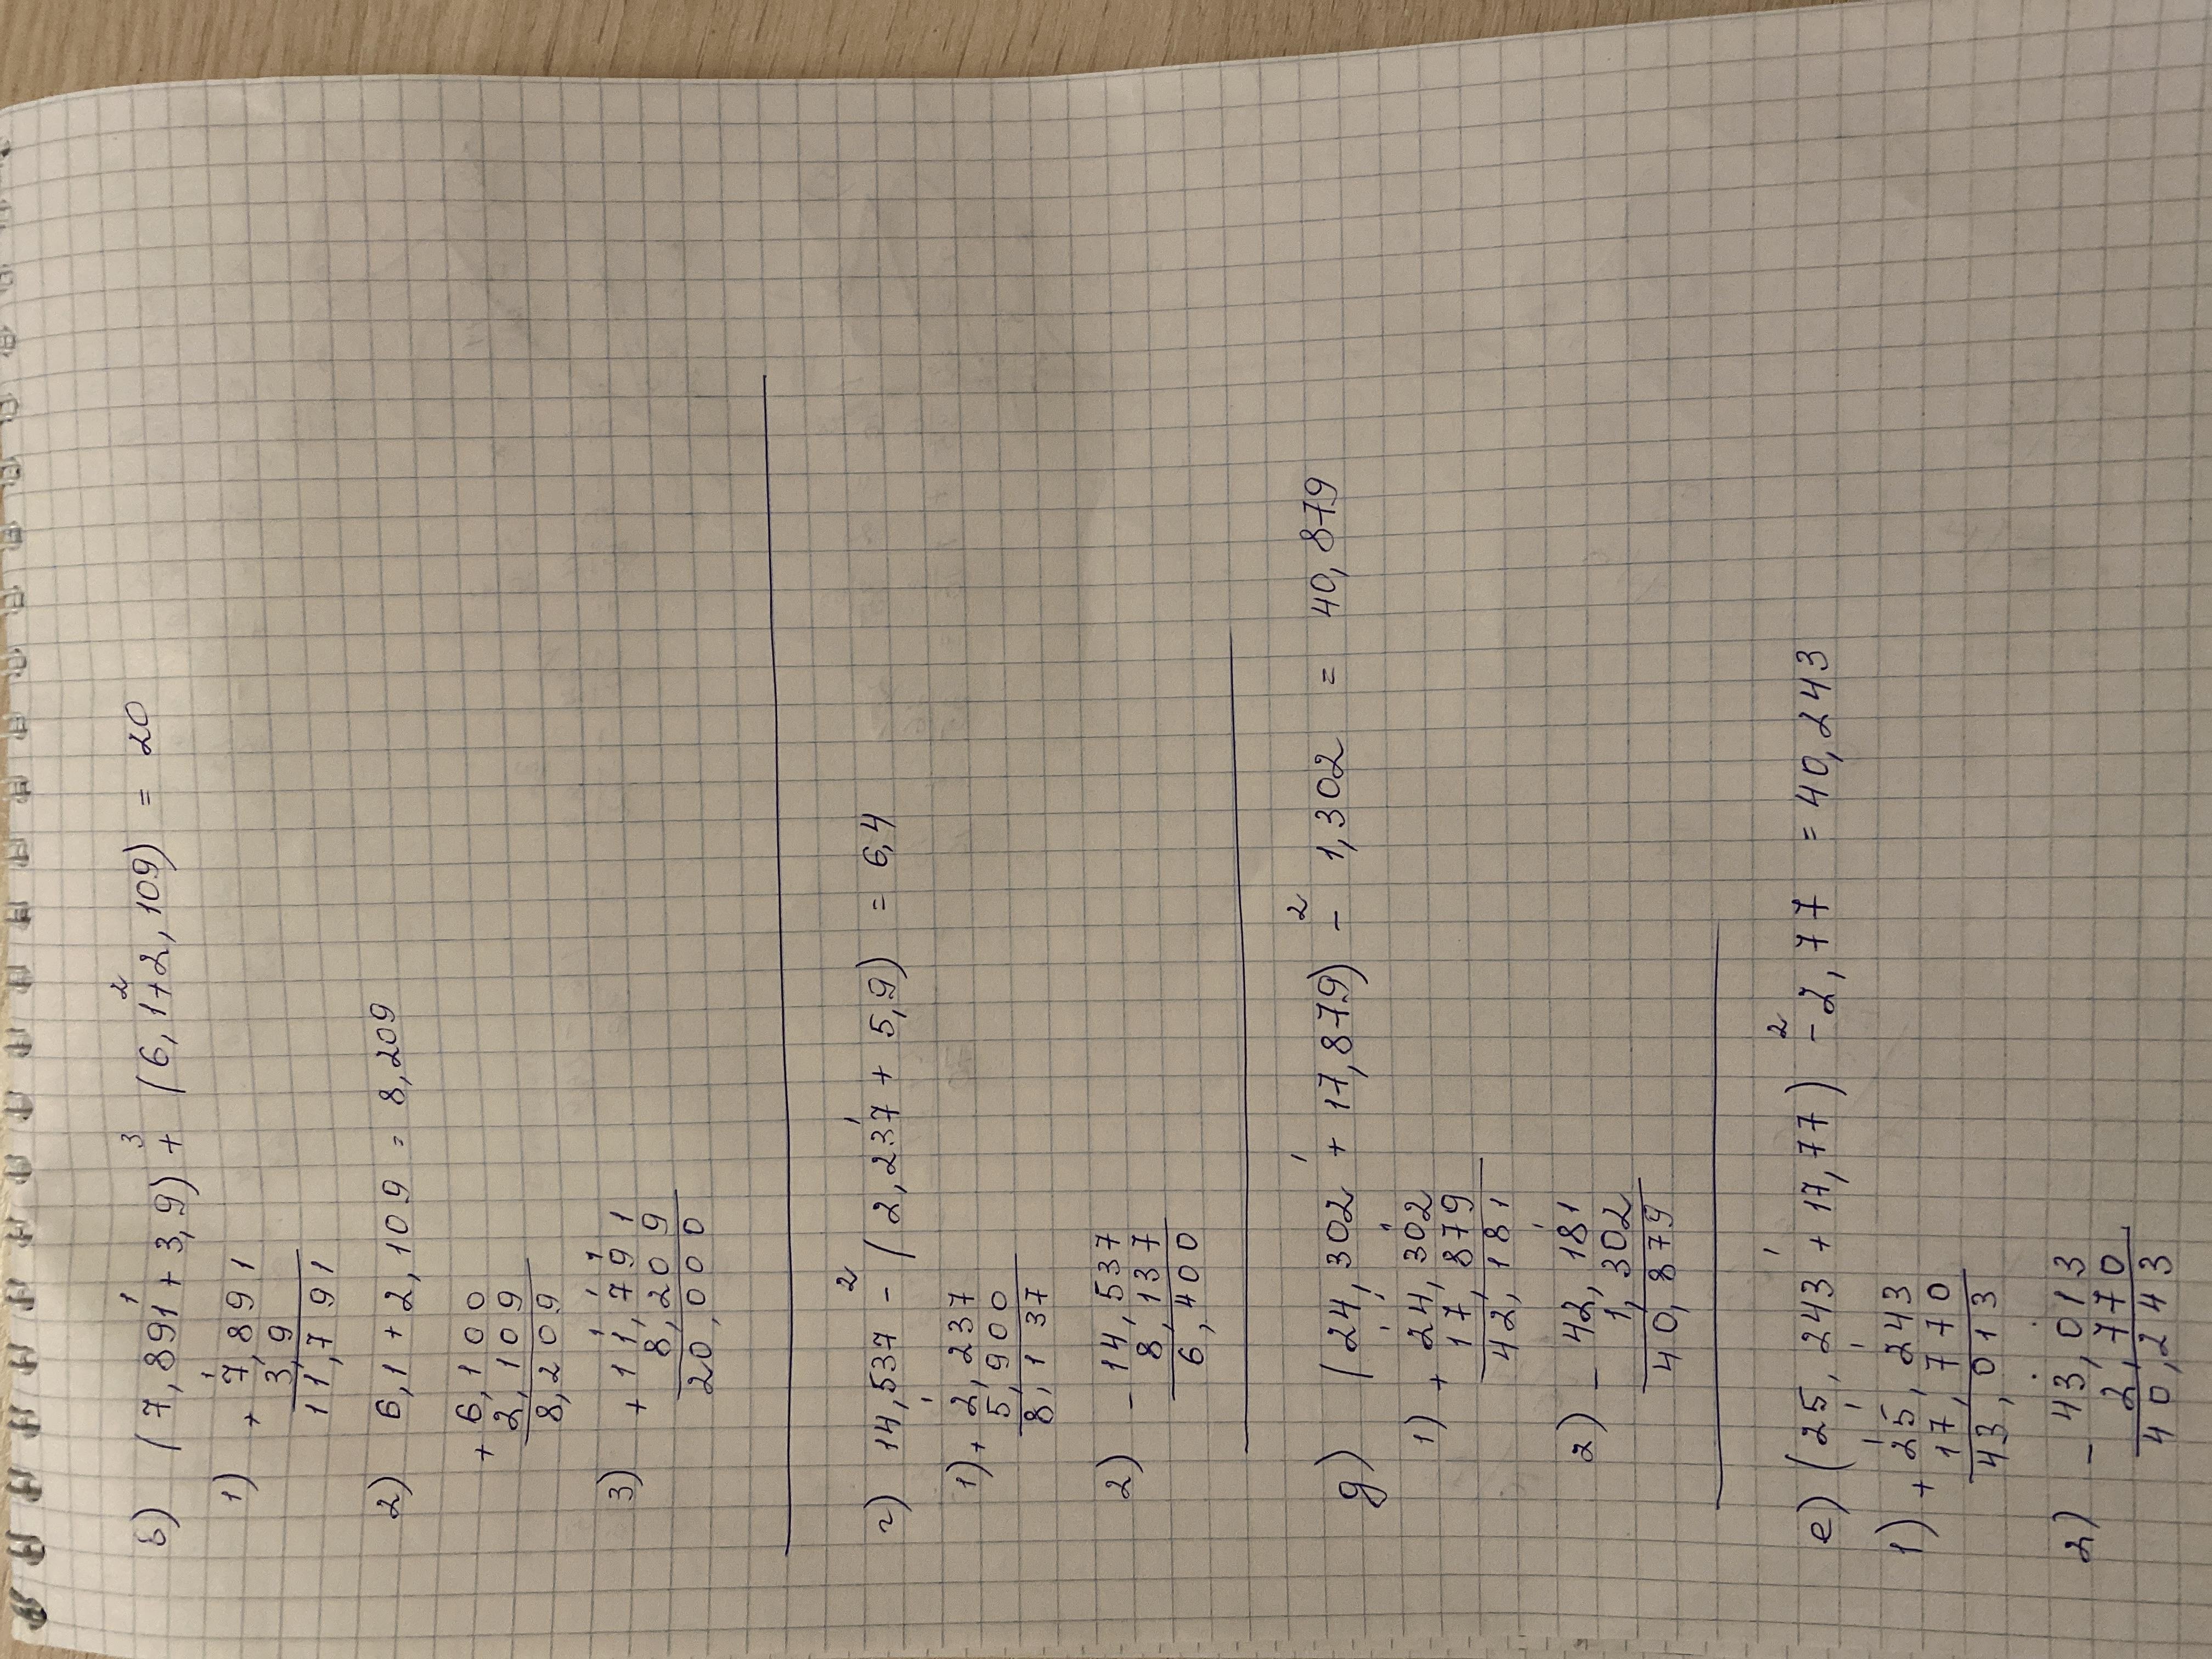 в) (7,891 + 3,9) + (6,1+2,109) = 20
1) + 7,891
3,9
11,791
2) 6,1 + 2,109 = 8,209
+ 6,100
2,109
8,209
3) + 11,791
8,209
20,000
г) 14,537 - (2,237 + 5,9) = 6,4
1) + 2,237
5,900
8,137
2) - 14,537
8,137
6,400
д) (24,302 + 17,879) - 1,302 = 40,879
1) + 24,302
17,879
42,181
2) - 42,181
1,302
40,879
е) (25,243 + 17,77) - 2,77 = 40,243
1) + 25,243
17,770
43,013
2) - 43,013
2,770
40,243